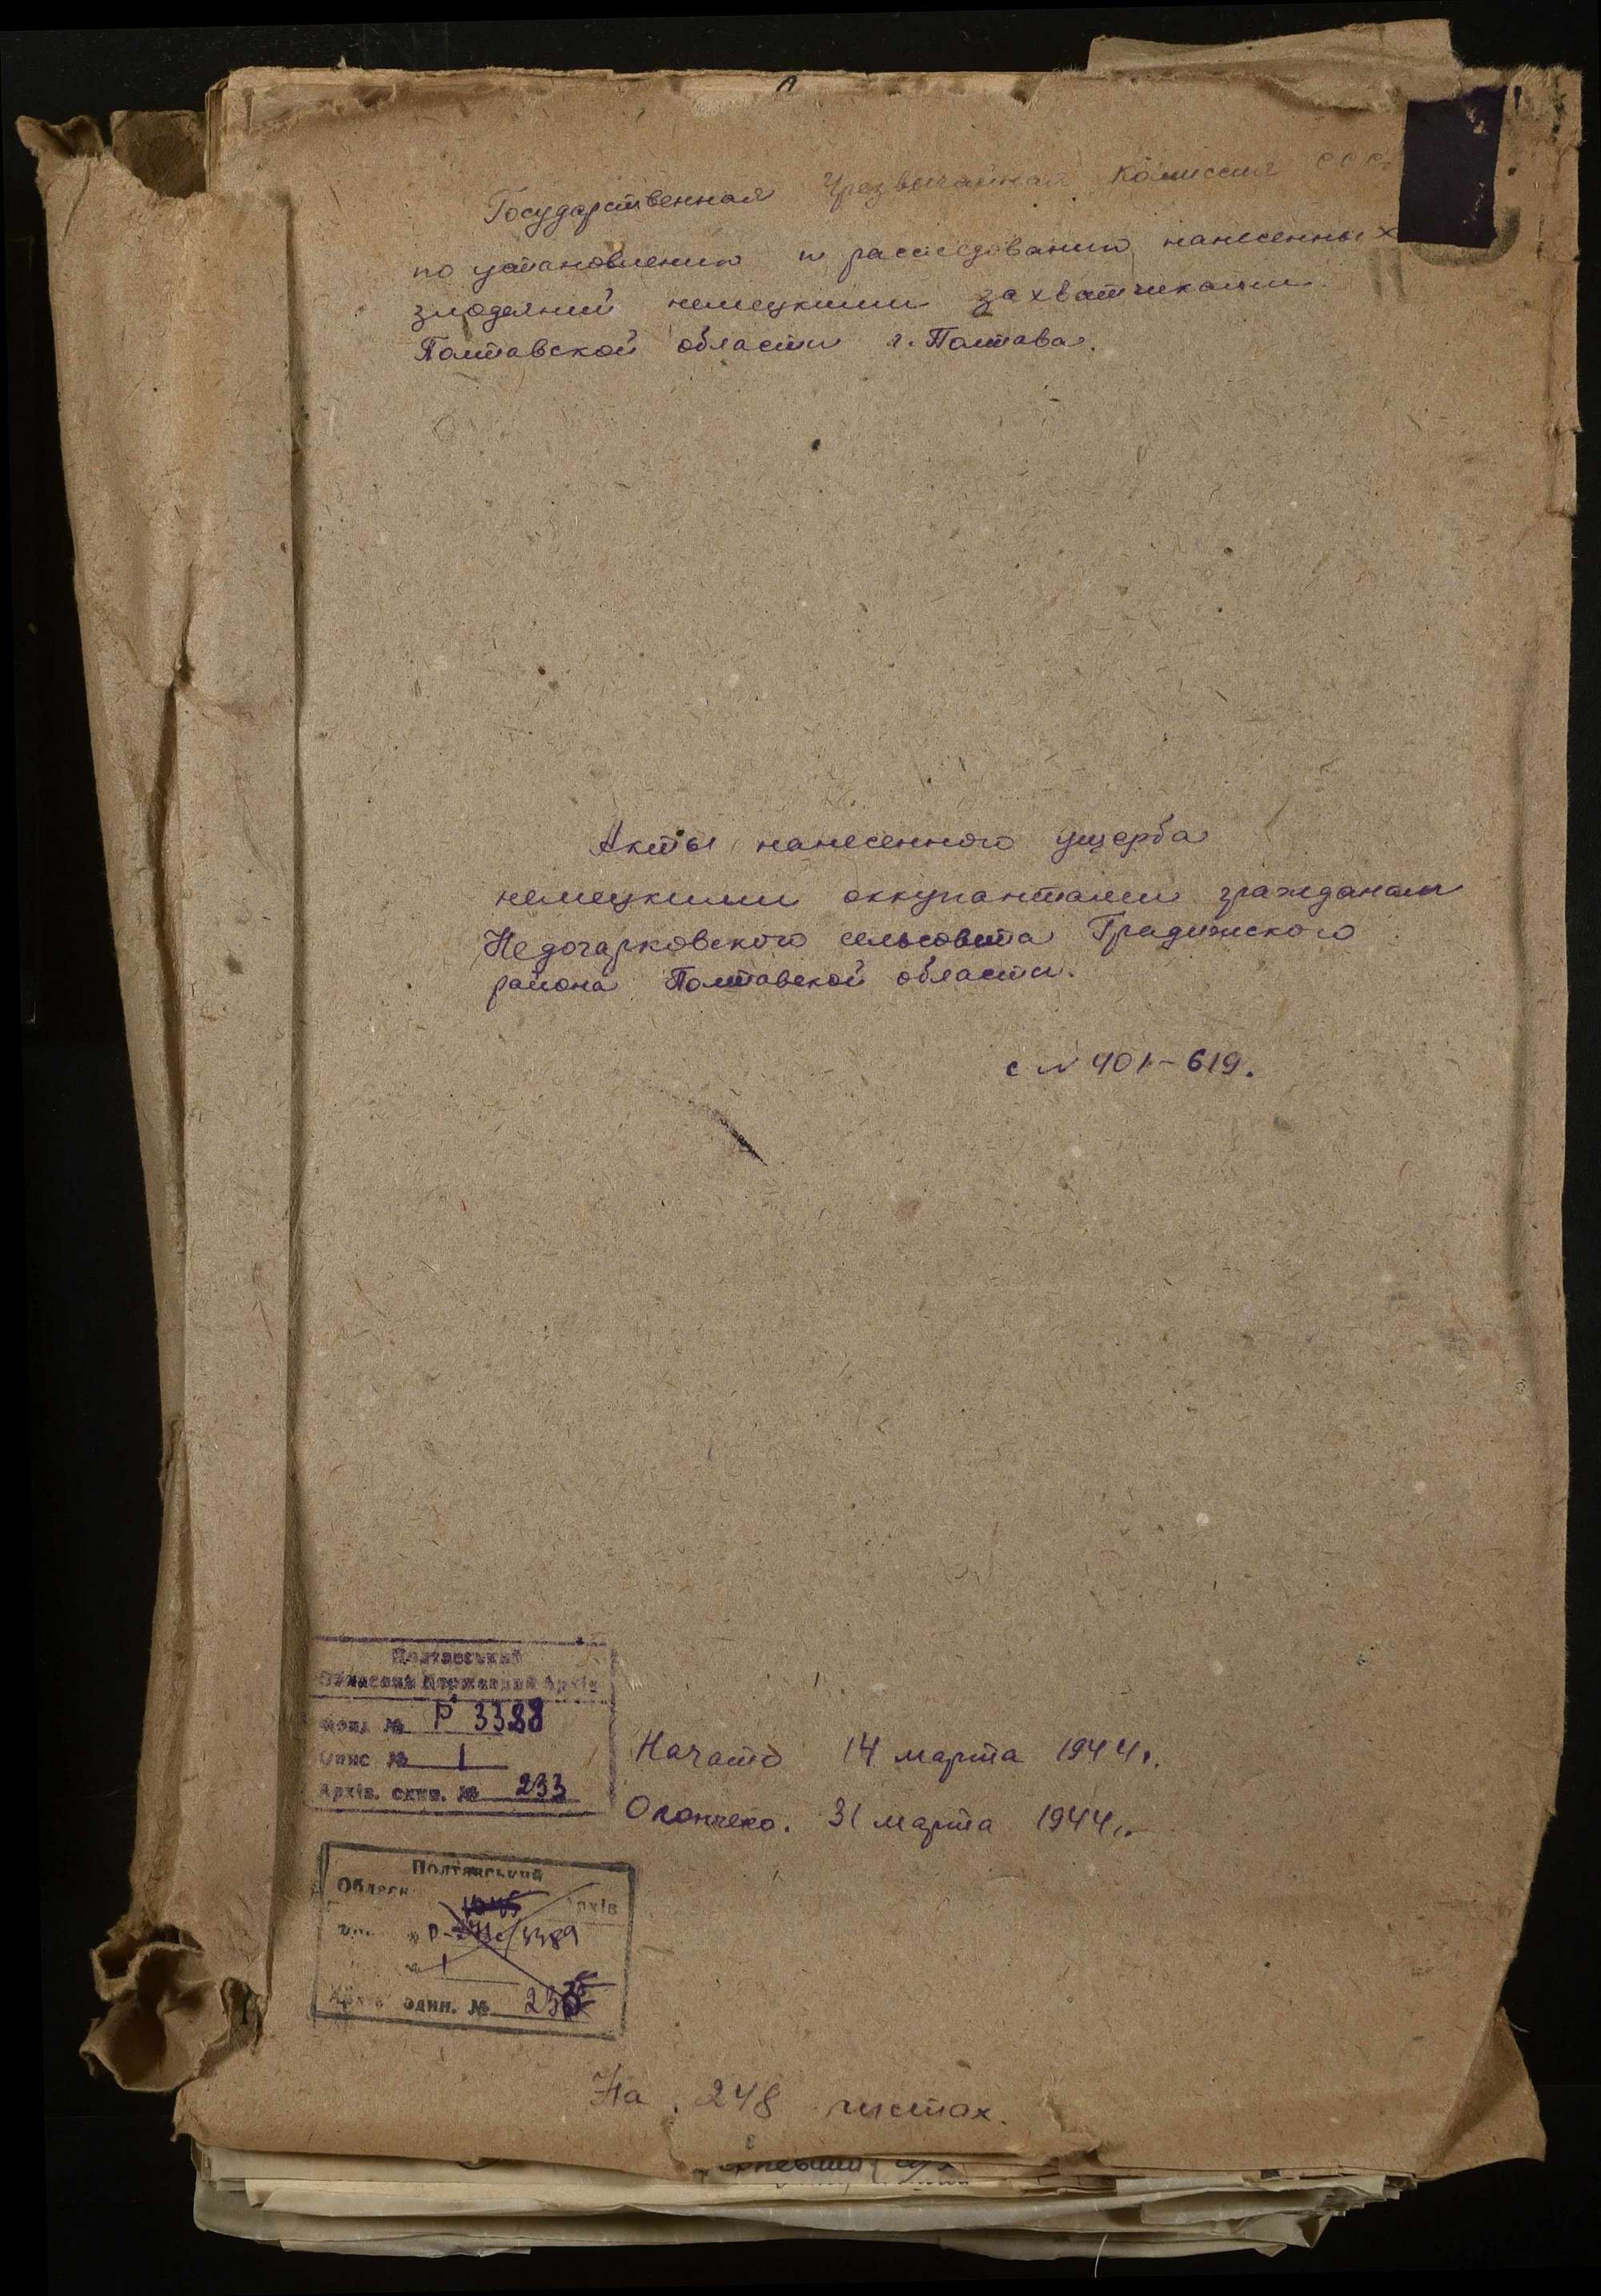 Государственная Чрезвычайная Комиссия ССР
по установлению и расследованию нанесенных
злодеяний немецкими захватчиками
Полтавской области г. Полтава.
Акты нанесенного ущерба
немецкими оккупантами гражданам
Недогарковского сельсовета Градижского
района Полтавской области.
с № 401-619.
Полтавський
Обласний Державний Архів
Фонд № Р 3388
Опис № 1
Архів. один. № 233
Начато 14 марта 1944 г.
Окончено. 31 марта 1944 г.
Полтавський
Обласн рхів
№ Р- /3389
1
Архів один. № 23
На 248 листах.